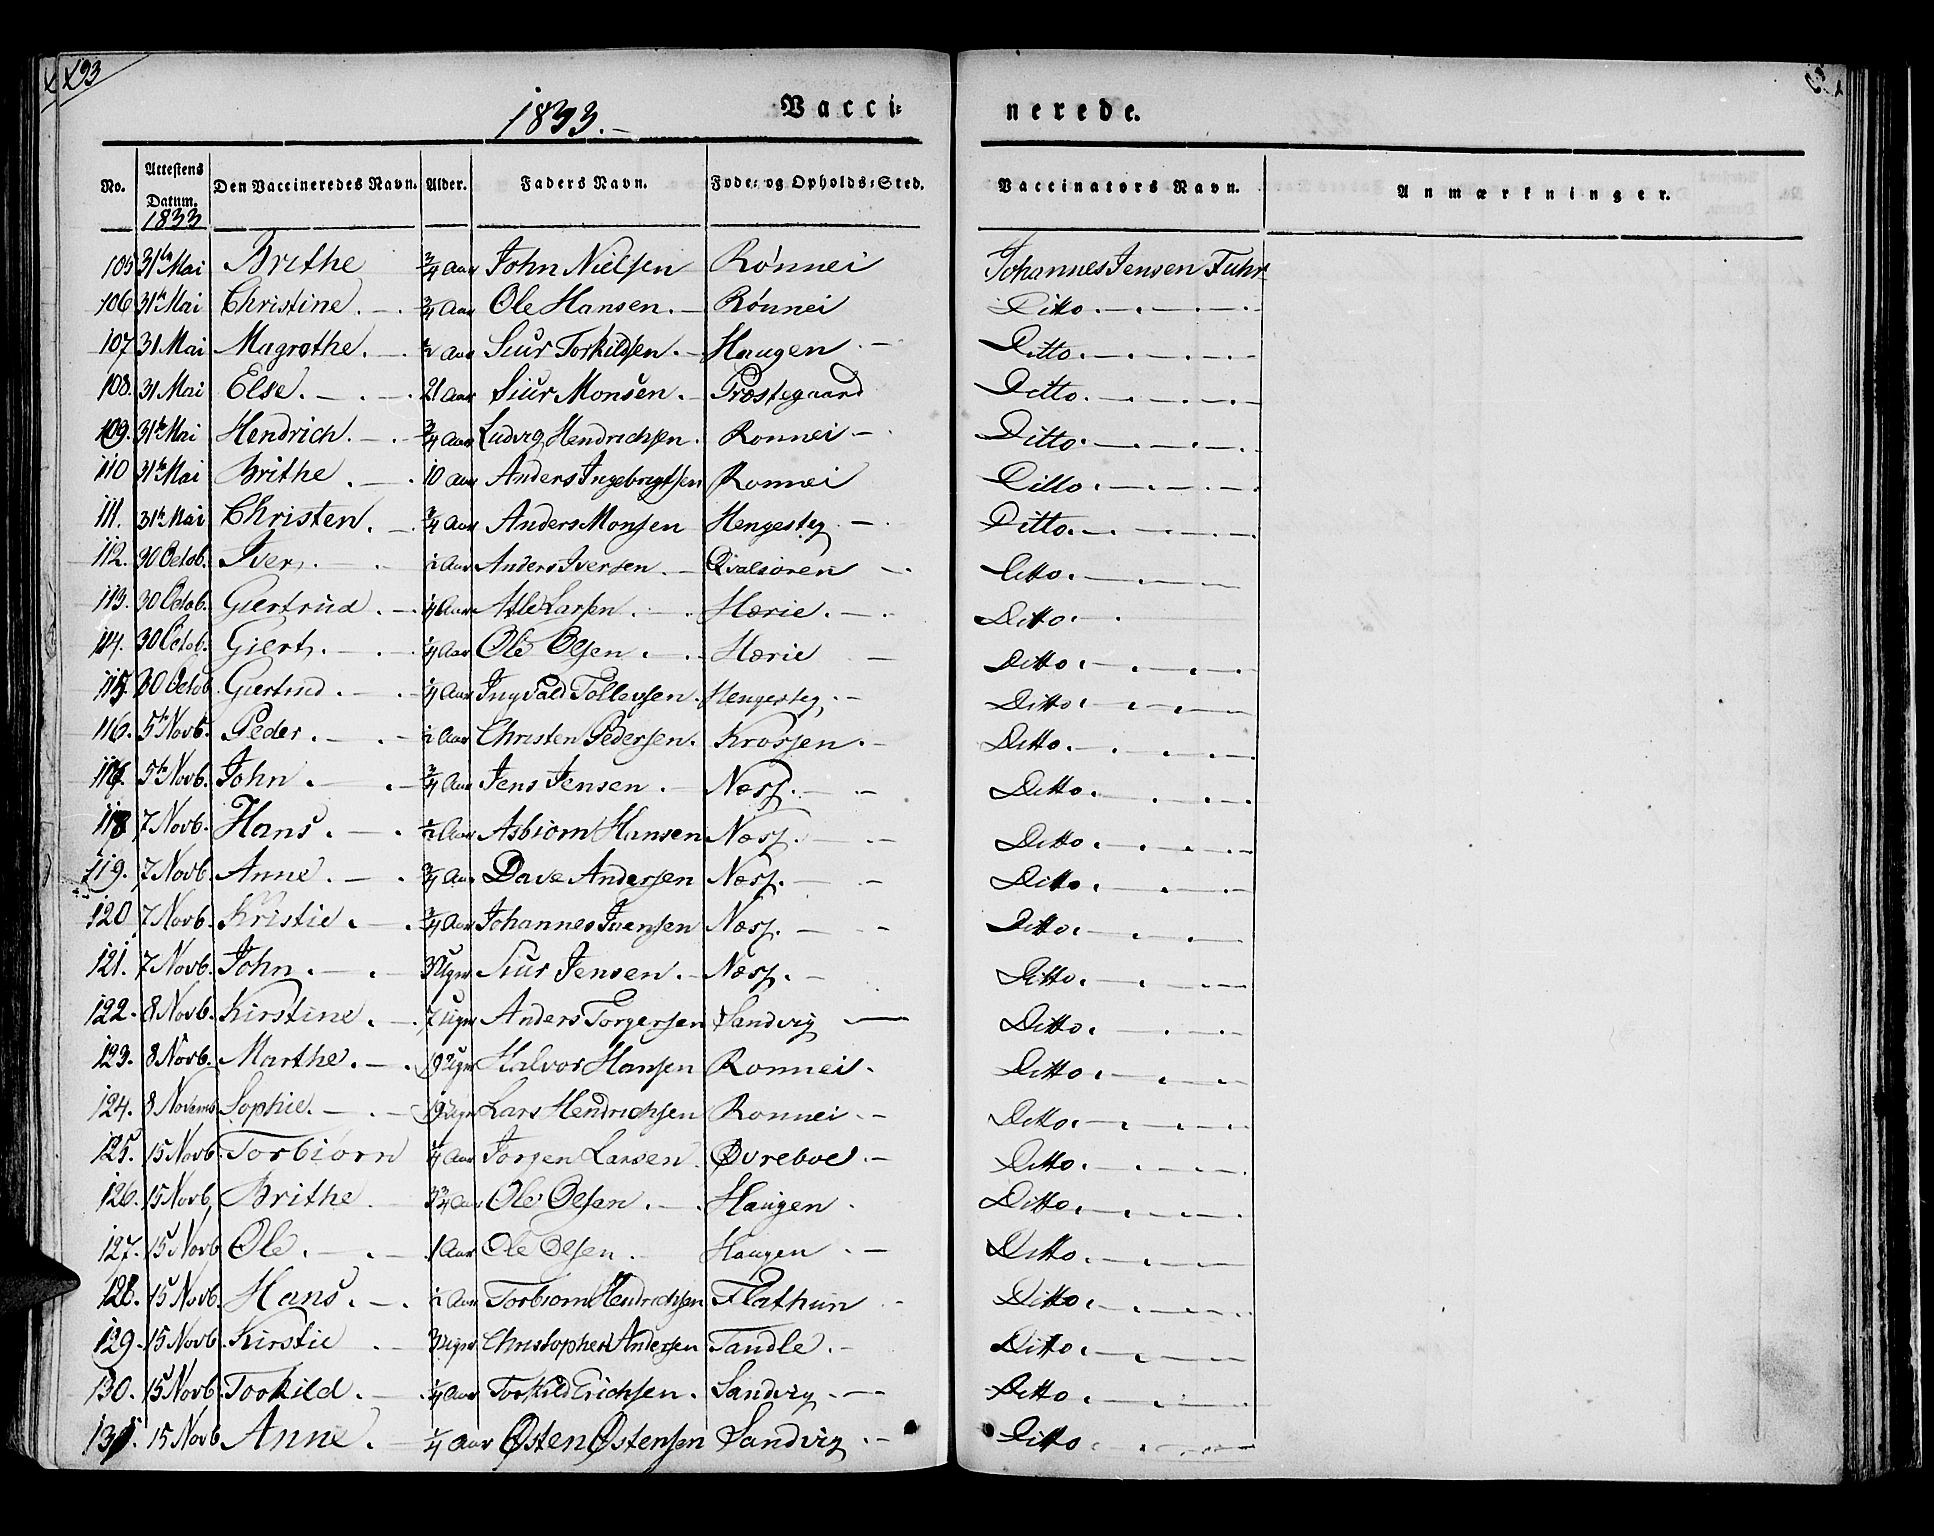 293
1833.
Vacci=
nerede.
No. Attestens Datum. Den Vaccineredes Navn. Alder. Faders Navn. Føde- og Opholds-Sted. Vaccinators Navn. Anmærkninger.
1833
105 31te Mai Brithe 3/4 Aar John Nielsen Rønnei Johannes Jensen Fuhr
106 31te Mai Christine. 3/4 Aar Ole Hansen. Rønnei Ditto.
107 31 Mai Magrethe. 1/2 Aar Siur Torkildsen. Haugen Ditto.
108. 31 Mai Else. 21 Aar Siur Monsen. Præstegaard Ditto.
109. 31te Mai Hendrich. 3/4 Aar Ludvig Hendrichsen. Ronnei Ditto.
110 31te Mai Brithe. 10 Aar Anders Ingebrigtsen Ronnei Ditto.
111. 31te Mai Christen. 3/4 Aar Anders Monsen Hengesteg Ditto.
112. 30 Octob. Iver. Aar Anders Iversen. Qvalsoren Ditto.
113. 30 Octob. Giertrud. 1/4 Aar Atle Larsen. Hærie. Ditto.
114. 30 Octob. Giert. 1/4 Aar Ole Olsen. Hærie Ditto.
115 30 Octob. Giertrud. 1/4 Aar Ingvald Tollevsen. Hengesteg. Ditto.
116. 5te Novb. Peder. Aar Christen Pedersen. Krossen. Ditto.
117. 5te Novb. John. 3/4 Aar Jens Jensen. Næss. Ditto.
118 7 Novb. Hans. 1/2 Aar Asbiorn Hansen Næss. Ditto.
119. 7 Novb. Anne. 3/4 Aar Dave Andersen Næss. Ditto.
120 7 Novb. Kristie. 3/4 Aar Johannes Iversen Næss. Ditto.
121. 7 Novb. John. Ugr Siur Jensen. Næss. Ditto.
122. 8 Novb. Kirstine. 7 Ugr Anders Torgersen Sandvig Ditto.
123. 8 Novb. Marthe. 19 Ugr Halvor Hansen Ronnei. Ditto.
124. 8 Novemb Sophie. 19 Ugr Lars Hendrichsen Ronnei. Ditto.
125. 15 Novb. Torbiorn 1/4 Aar Jorgen Larsen. Øvreboe. Ditto.
126. 15 Novb. Brithe 3 3/4 Aar Ole Olsen. Haugen. Ditto.
127. 15 Novb Ole. 1 Aar Ole Olsen. Haugen. Ditto.
128. 15 Novb. Hans. Aar Torbiorn Hendrichsen Flathun Ditto.
129. 15 Novb. Kirstie Ugr Christopher Andersen Tandle. Ditto.
130. 15 Novb. Torkild. 1/4 Aar Torkild Erichsen. Sandvig. Ditto.
131. 15 Novb Anne. 1/4 Aar Østen Østensen Sandvig. Ditto.